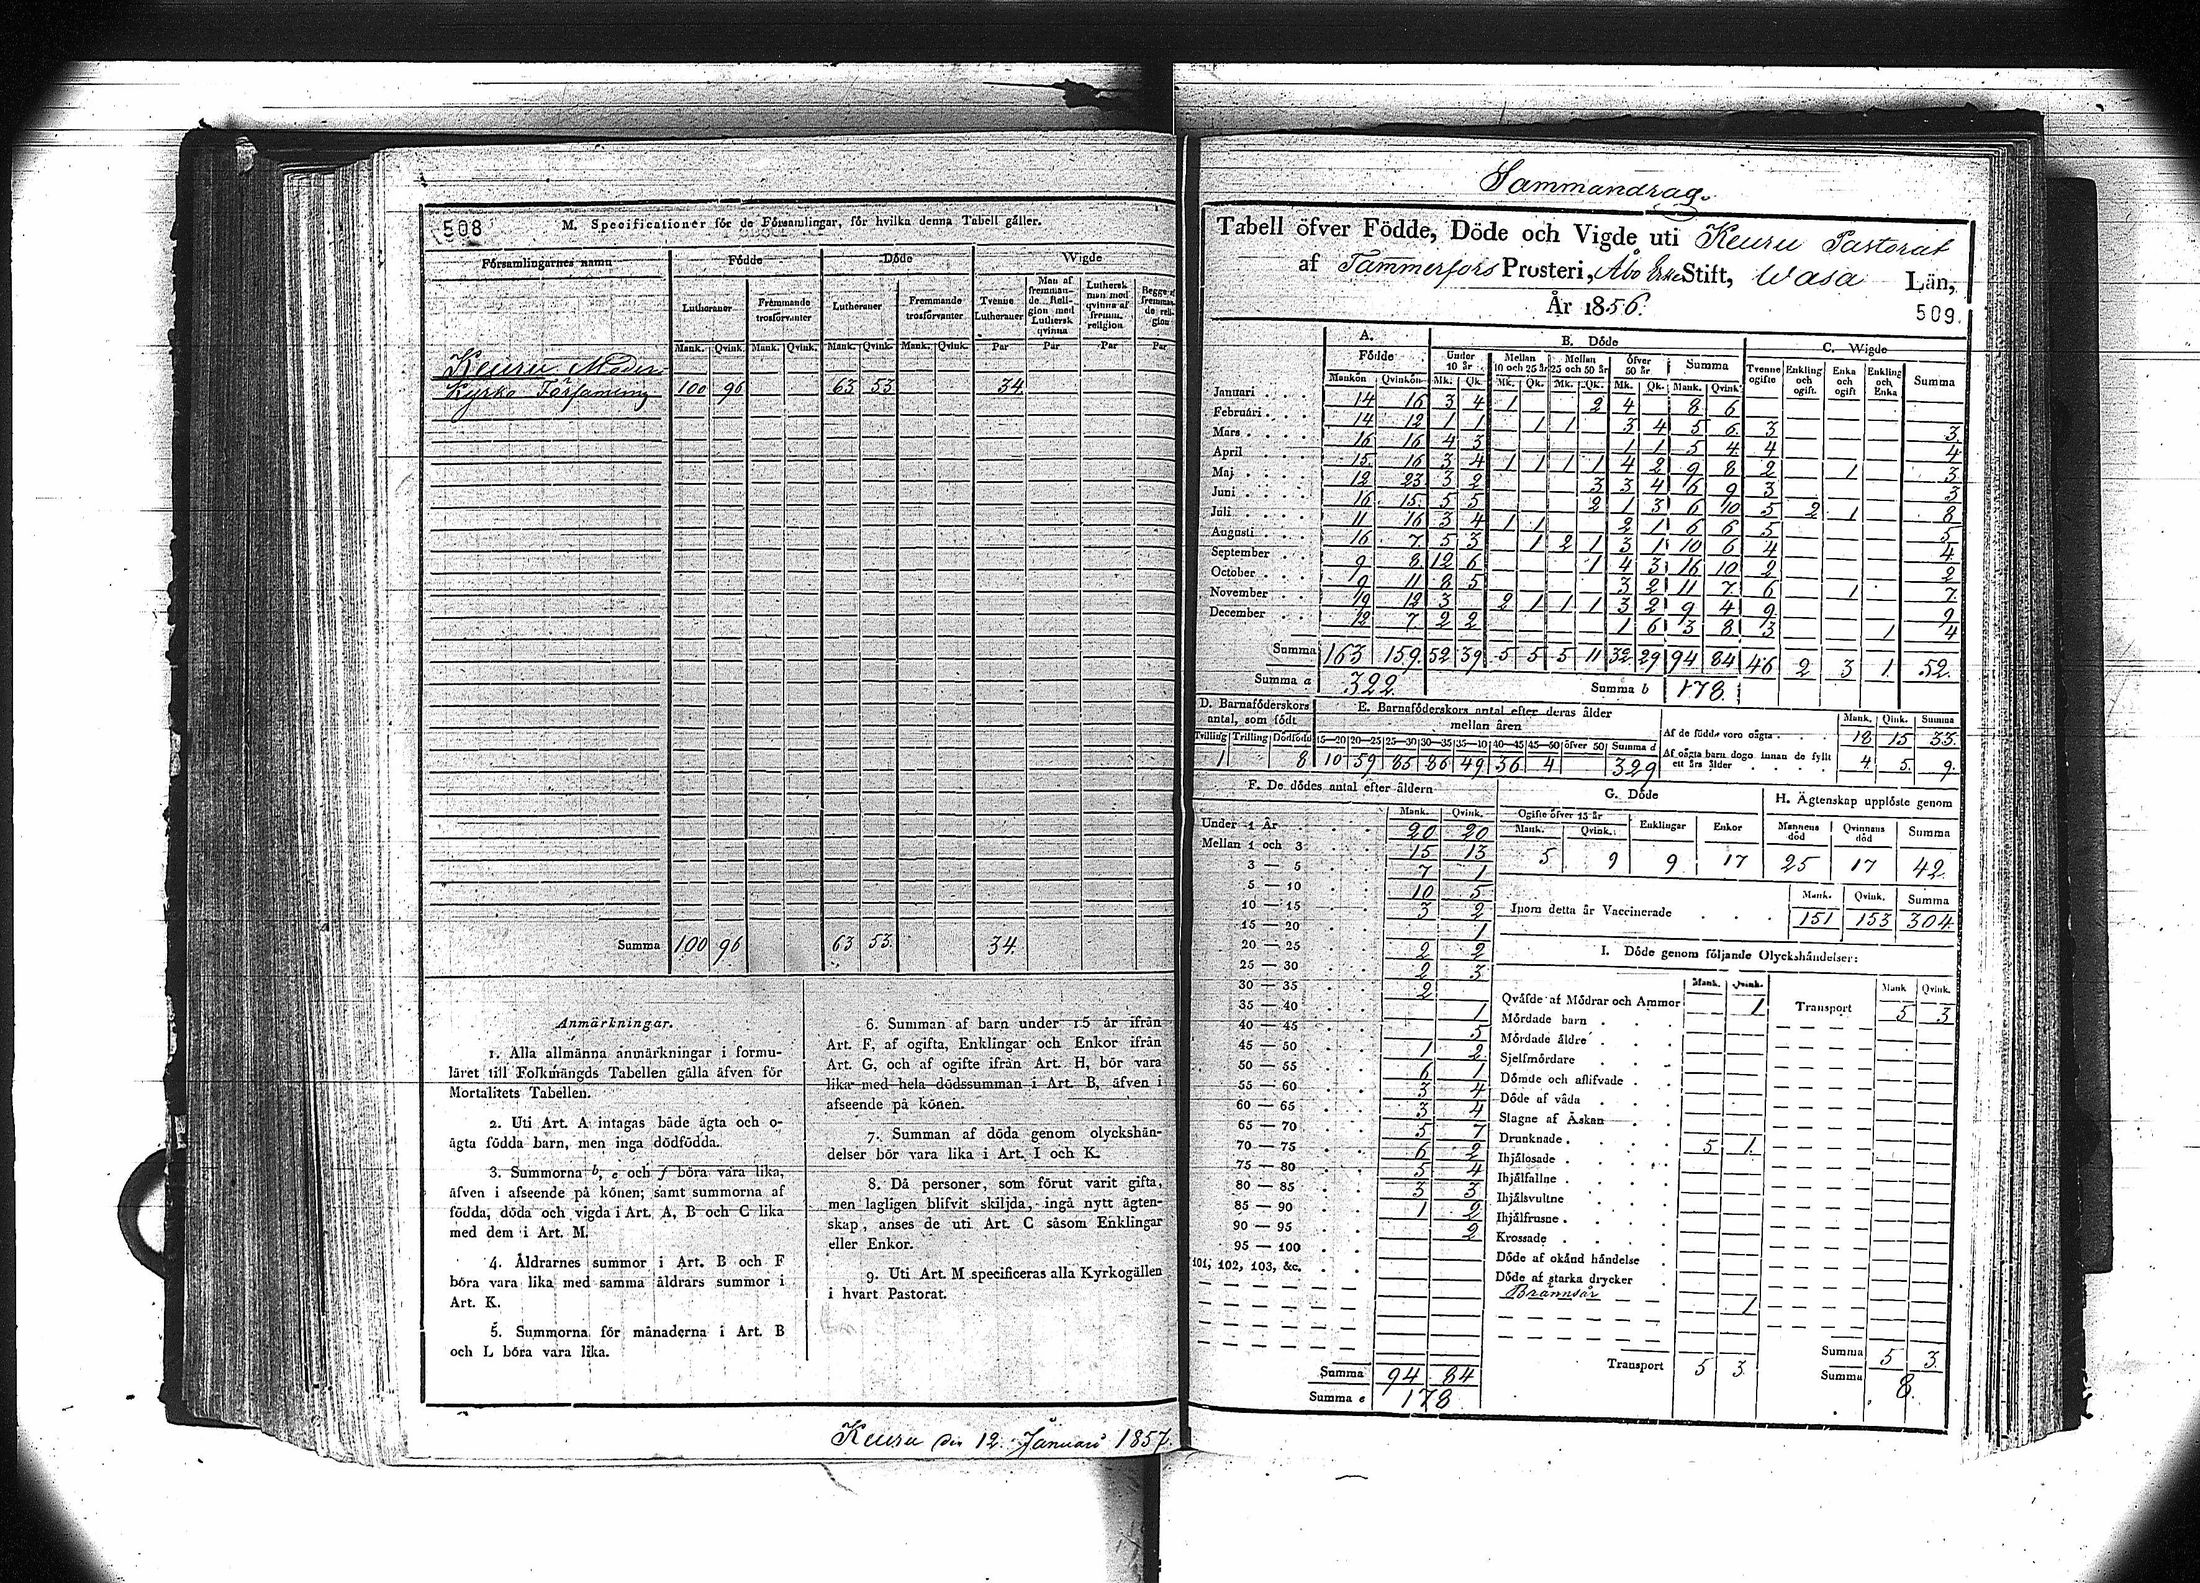 508
M. Specificationer för de Församlingar, för hvilka denna Tabell gäller.
Församlingarnes namn Födde Döde Wigde
Lutheraner Fremmande trosförvanter Lutheraner Fremmande trosförvanter Tvenne Lutheraner Man af fremmande Religion med Luthersk qvinna Luthersk man med qvinna af fremm. religion Begge af fremmande religion
Mank. Qvink. Mank. Qvink. Mank. Qvink. Mank. Qvink. Par Par Par Par
Keuru Moder
Kyrko Församling 100 96 63 53 34.
Summa 100 96 63 53. 34.
Anmärkningar.
1. Alla allmänna anmärkningar i formu-
läret till Folkmängds Tabellen gälla äfven för
Mortalitets Tabellen.
2. Uti Art. A intagas både ägta och o-
ägta födda barn, men inga dödfödda.
3. Summorna b, e och f böra vara lika,
äfven i afseende på könen; samt summorna af
födda, döda och vigda i Art. A, B och C lika
med dem i Art. M.
4. Åldrarnes summor i Art. B och F
böra vara lika med samma åldrars summor i
Art. K.
5. Summorna för månaderna i Art. B
och L böra vara lika.
6. Summan af barn under 15 år ifrån
Art. F, af ogifta, Enklingar och Enkor ifrån
Art. G, och af ogifte ifrån Art. H, bör vara
lika med hela dödssumman i Art. B, äfven i
afseende på könen.
7. Summan af döda genom olyckshän-
delser bör vara lika i Art. I och K.
8. Då personer, som förut varit gifta,
men lagligen blifvit skiljda, ingå nytt ägten-
skap, anses de uti Art. C såsom Enklingar
eller Enkor.
9. Uti Art. M specificeras alla Kyrkogällen
i hvart Pastorat.
Keuru den 12. Januari 1857.
Sammandrag.
Tabell öfver Födde, Döde och Vigde uti Keuru Pastorat
af Tammerfors Prosteri, Åbo Erke Stift, Wasa Län,
År 1856.
509.
A. B. Döde C. Wigde
Födde Under 10 år Mellan 10 och 25 år Mellan 25 och 50 år öfver 50 år Summa Tvenne ogifte Enkling och ogift. Enka och ogift Enkling och Enka Summa
Mankön Qvinkön Mk. Qk. Mk. Qk. Mk. Qk. Mk. Qk. Mank. Qvink.
Januari 14 16 3 4 1 2 4 8 6
Februari 14 12 1 1 1 1 3 4 5 6 3 3.
Mars 16 16 4 3 1 1 5 4 4 4
April 15. 16 3 4 1 1 1 1 4 2 9 8 2 1 3
Maj 12 23 3 2 3 3 4 6 9 3 3
Juni 16 15. 5 5 2 1 3 6 10 5 2 1 8
Juli 11 16 3 4 1 1 2 1 6 6 5 5
Augusti 16 7 5 3 1 2 1 3 1 10 6 4 4
September 9 8 12 6 1 4 3 16 10 2 2
October 9 11 8 5 3 2 11 7 6 1 7.
November 19 12 3 2 1 1 1 3 2 9 4 9 9
December 12 7 2 2 1 6 3 8 3 1 4
Summa 163 159. 52 39 5 5 5 11 32 29 94 84 46 2 3 1. 52.
Summa a 322 Summa b 178.
D. Barnaföderskors antal, som födt
Tvilling Trilling Dödfödd
1 8
E. Barnaföderskors antal efter deras ålder mellan åren
15—20 20—25 25—30 30—35 35—40 40—45 45—50 öfver 50 Summa d
10 59 85 86 49 36 4 329
Mank. Qink. Summa
Af de födde voro oägta 18 15 33.
Af oägta barn dogo innan de fyllt ett års ålder 4 5. 9.
F. De dödes antal efter åldern
Mank. Qvink.
Under 1 År 20 20
Mellan 1 och 3 15 13
3 — 5 7 1
5 — 10 10 5
10 — 15 3 2
15 — 20 1
20 — 25 2 2
25 — 30 2 3
30 — 35 2
35 — 40 1
40 — 45 5
45 — 50 1 2
50 — 55 6 1
55 — 60 3 4
60 — 65 3 4
65 — 70 5 7
70 — 75 6 2
75 — 80 5 4
80 — 85 3 3
85 — 90 1 2
90 — 95 2
95 — 100
101, 102, 103, &c.
Summa 94 84
Summa e 178
G. Döde
Ogifte öfver 15 år Enklingar Enkor
Mank. Qvink.
5 9 9 17
H. Ägtenskap upplöste genom
Mannens död Qvinnans död Summa
25 17 42.
Mank. Qvink. Summa
Inom detta år Vaccinerade 151 153 304
I. Döde genom följande Olyckshändelser:
Mank. Qvink. Mank Qvink.
Qväfde af Mödrar och Ammor 1 Transport 5 3
Mördade barn
Mördade äldre
Sjelfmördare
Dömde och aflifvade
Döde af våda
Slagne af Åskan
Drunknade 5 1.
Ihjälosade
Ihjälfallne
Ihjälsvultne
Ihjälfrusne
Krossade
Döde af okänd händelse
Döde af starka drycker
Brännsår 1
Transport 5 3. Summa 5 3.
Summa 8.